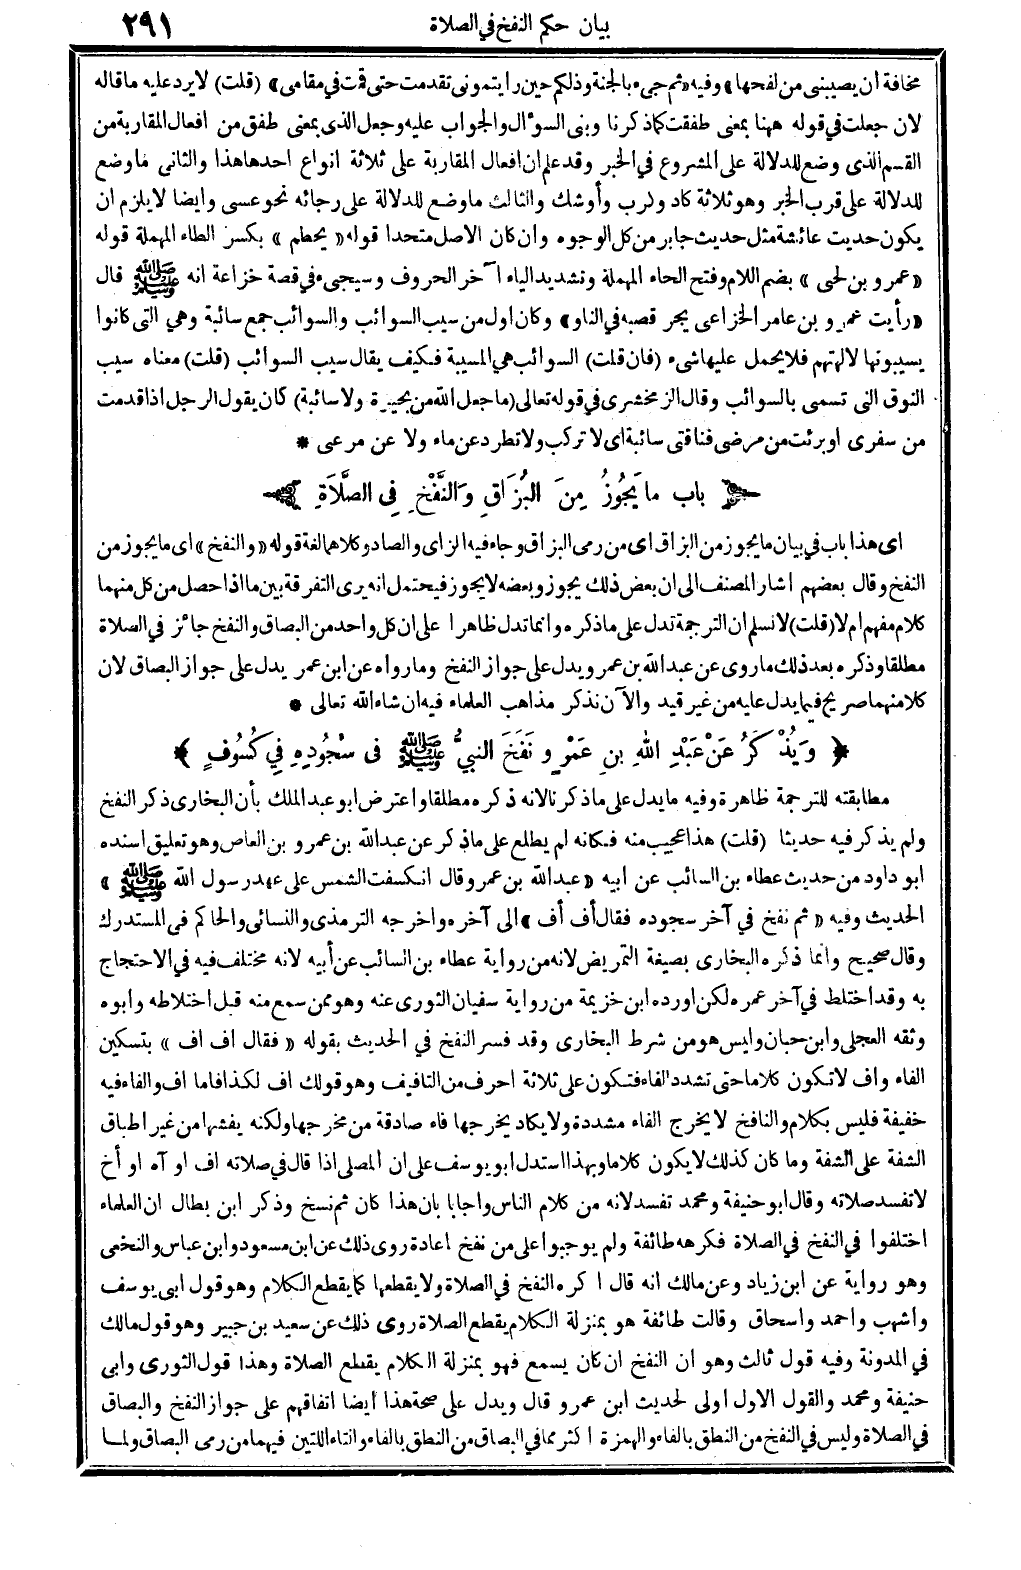 بيان حكم النفخ في الصلاة ٢٩١
مخافة ان يصيبنى من لفحها» وفيه «ثم جىء بالجنة وذلكم حين رايتمونى تقدمت حتى قمت في مقامى» (قلت) لا يرد عليه ما قاله
لان جعلت في قوله ههنا بمعنى طفقت كما ذكرنا وبنى السؤال والجواب عليه وجعل الذى بمعنى طفق من افعال المقاربة من
القسم الذى وضع للدلالة على المشروع في الخبر وقد علم ان افعال المقاربة على ثلاثة انواع احدها هذا والثانى ما وضع
للدلالة على قرب الخبر وهو ثلاثة كاد وكرب وأوشك والثالث ما وضع للدلالة على رجائه نحو عسى وايضا لا يلزم ان
يكون حديث عائشة مثل حديث جابر من كل الوجوه وان كان الاصل متحدا قوله «يحطم» بكسر الطاء المهملة قوله
«عمرو بن لحى» بضم اللام وفتح الحاء المهملة وتشديد الياء آخر الحروف وسيجىء في قصة خزاعة انه ﷺ قال
«رأيت عمرو بن عامر الخزاعى يجر قصبه في النار» وكان اول من سيب السوائب والسوائب جمع سائبة وهي التى كانوا
يسيبونها لآلهتهم فلا يحمل عليها شىء (فان قلت) السوائب هي المسيبة فكيف يقال سيب السوائب (قلت) معناه سيب
النوق التى تسمى بالسوائب وقال الزمخشرى في قوله تعالى (ما جعل الله من بحيرة ولا سائبة) كان يقول الرجل اذا قدمت
من سفرى او برئت من مرضى فناقتى سائبة اى لا تركب ولا تطرد عن ماء ولا عن مرعى *
﴿ باب ما يَجُوزُ مِنَ البُزَاقِ وَالنَّفْخِ فِى الصَّلَاةِ ﴾
اى هذا باب في بيان ما يجوز من البزاق اى من رمى البزاق وجاء فيه الزاى والصاد وكلاهما لغة قوله «والنفخ» اى ما يجوز من
النفخ وقال بعضهم اشار المصنف الى ان بعض ذلك يجوز وبعضه لا يجوز فيحتمل انه يرى التفرقة بين ما اذا حصل من كل منهما
كلام مفهم ام لا (قلت) لا نسلم ان الترجمة تدل على ما ذكره وانما تدل ظاهرا على ان كل واحد من البصاق والنفخ جائز في الصلاة
مطلقا وذكره بعد ذلك ما روى عن عبدالله بن عمرو يدل على جواز النفخ وما رواه عن ابن عمر يدل على جواز البصاق لان
كلا منهما صريح فيما يدل عليه من غير قيد والآن نذكر مذاهب العلماء فيه ان شاء الله تعالى *
﴿ وَيُذْكَرُ عَنْ عَبْدِ اللهِ بنِ عَمْرٍو نَفَخَ النبيُّ ﷺ فى سُجُودِهِ فِي كُسُوفٍ ﴾
مطابقته للترجمة ظاهرة وفيه ما يدل على ما ذكرنا لانه ذكره مطلقا واعترض ابو عبدالملك بأن البخارى ذكر النفخ
ولم يذكر فيه حديثا (قلت) هذا عجيب منه فكانه لم يطلع على ما ذكر عن عبدالله بن عمرو بن العاص وهو تعليق اسنده
ابو داود من حديث عطاء بن السائب عن ابيه «عبدالله بن عمرو قال انكسفت الشمس على عهد رسول الله ﷺ»
الحديث وفيه «ثم نفخ في آخر سجوده فقال أف أف» الى آخره واخرجه الترمذى والنسائى والحاكم فى المستدرك
وقال صحيح وانما ذكره البخارى بصيغة التمريض لانه من رواية عطاء بن السائب عن أبيه لانه مختلف فيه في الاحتجاج
به وقد اختلط في آخر عمره لكن اورده ابن خزيمة من رواية سفيان الثورى عنه وهو ممن سمع منه قبل اختلاطه وابوه
وثقه العجلى وابن حبان وليس هو من شرط البخارى وقد فسر النفخ في الحديث بقوله «فقال اف اف» بتسكين
الفاء واف لا تكون كلاما حتى تشدد الفاء فتكون على ثلاثة احرف من التافيف وهو قولك اف لكذا فاما اف والفاء فيه
خفيفة فليس بكلام والنافخ لا يخرج الفاء مشددة ولا يكاد يخرجها فاء صادقة من مخرجها ولكنه يفشها من غير اطباق
الشفة على الشفة وما كان كذلك لا يكون كلاما وبهذا استدل ابو يوسف على ان المصلى اذا قال في صلاته اف او آه او أخ
لا تفسد صلاته وقال ابو حنيفة ومحمد تفسد لانه من كلام الناس واجابا بان هذا كان ثم نسخ وذكر ابن بطال ان العلماء
اختلفوا في النفخ في الصلاة فكرهه طائفة ولم يوجبوا على من نفخ اعادة روى ذلك عن ابن مسعود وابن عباس والنخعى
وهو رواية عن ابن زياد وعن مالك انه قال اكره النفخ في الصلاة ولا يقطعها كما يقطع الكلام وهو قول ابى يوسف
واشهب واحمد واسحاق وقالت طائفة هو بمنزلة الكلام يقطع الصلاة روى ذلك عن سعيد بن جبير وهو قول مالك
في المدونة وفيه قول ثالث وهو ان النفخ ان كان يسمع فهو بمنزلة الكلام يقطع الصلاة وهذا قول الثورى وابى
حنيفة ومحمد والقول الاول اولى لحديث ابن عمرو قال ويدل على صحة هذا أيضا اتفاقهم على جواز النفخ والبصاق
في الصلاة وليس في النفخ من النطق بالفاء والهمزة اكثر مما في البصاق من النطق بالفاء والتاء اللتين فيهما من رمى البصاق ولما